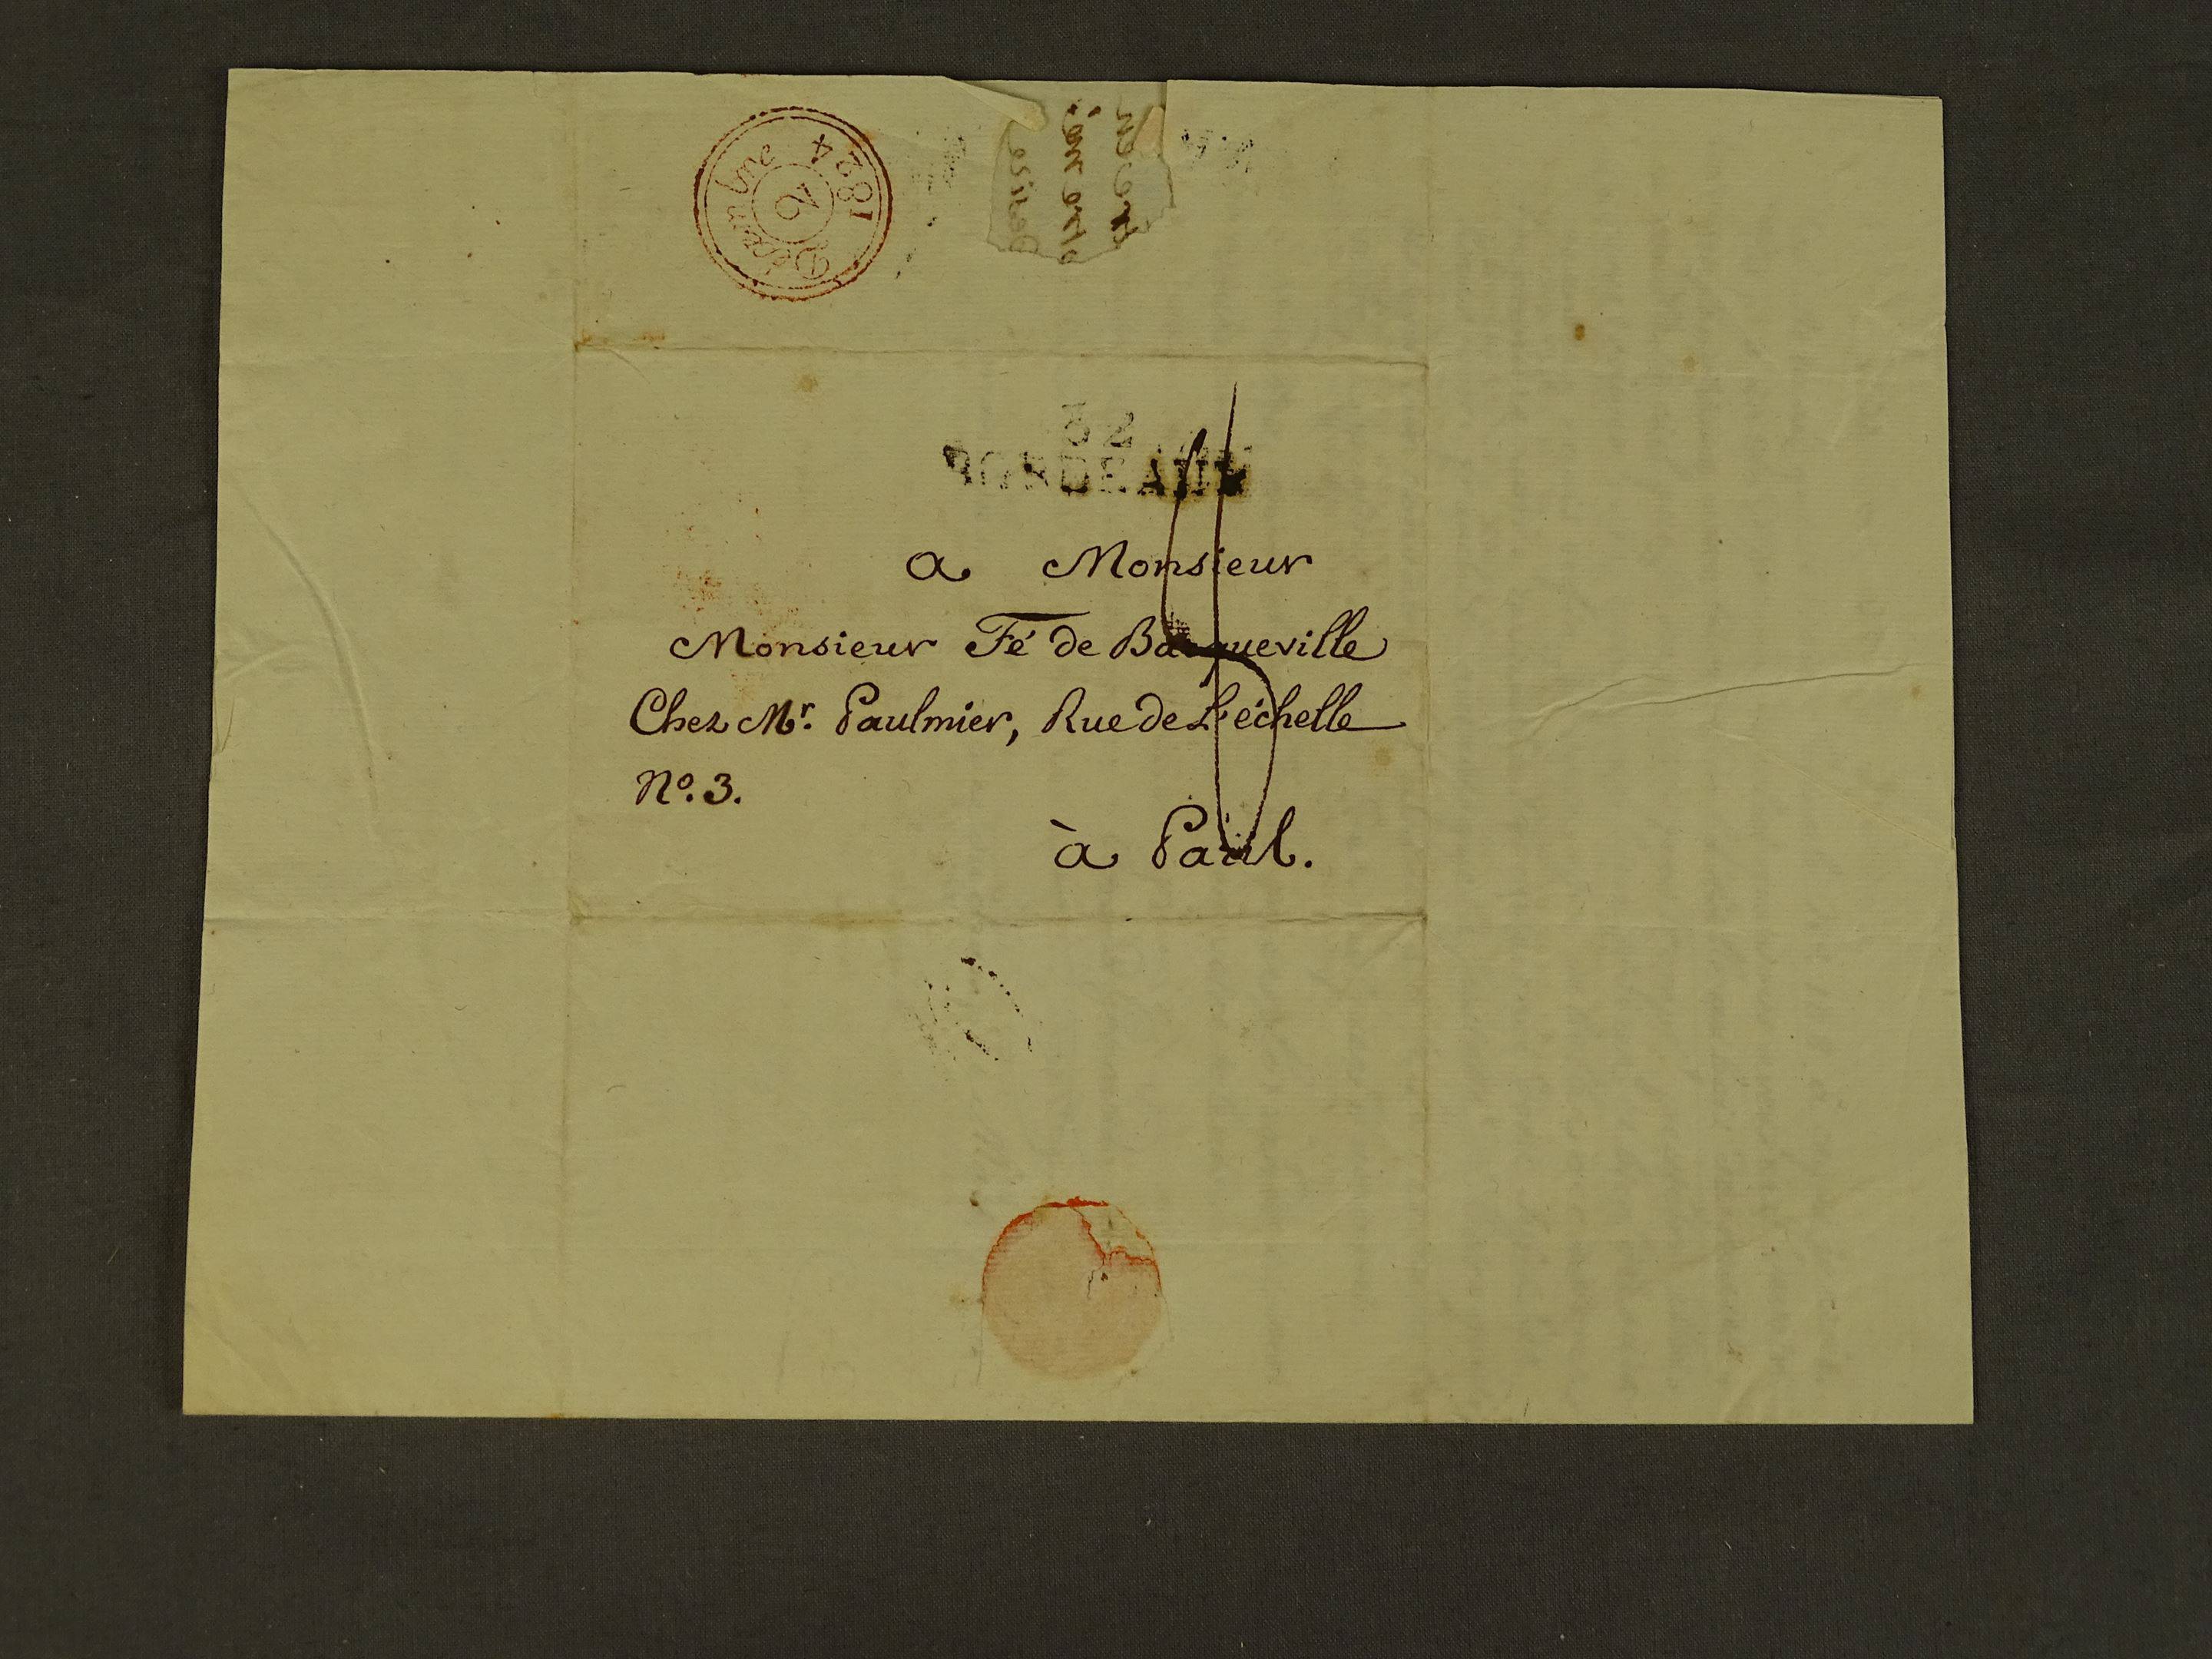 Décembre 2 1824
32
BORDEAUX
a Monsieur
Monsieur Fé de Bacqueville
Chez Mr. Paulmier, Rue de L'échelle
No. 3.
à Paul.